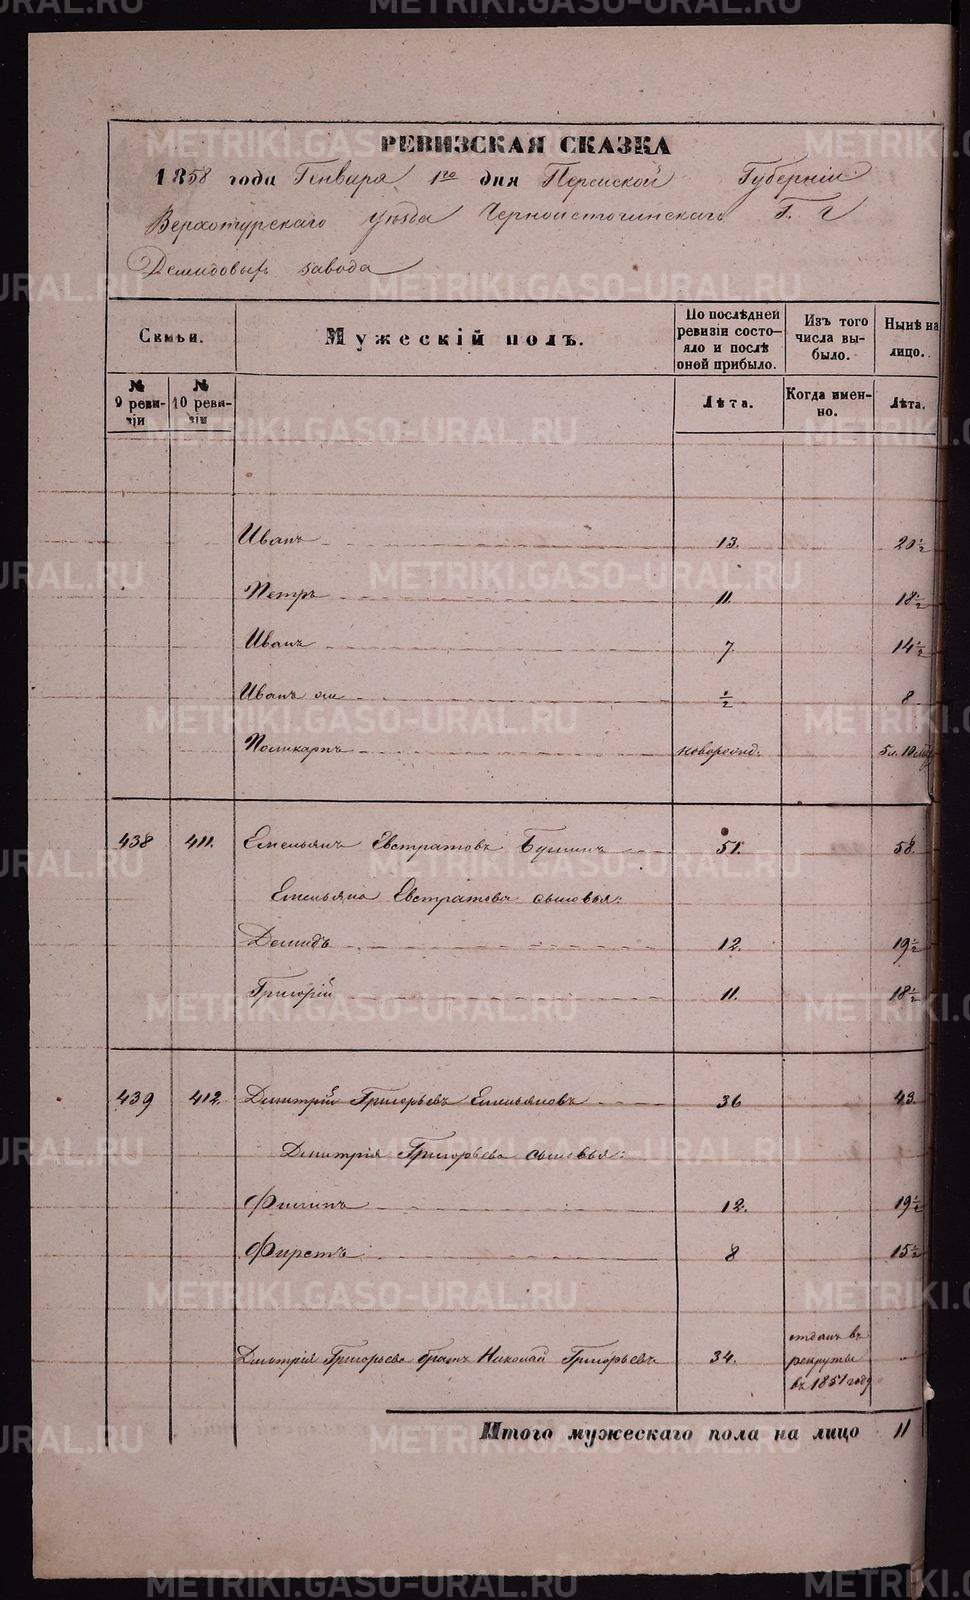 РЕВИЗСКАЯ СКАЗКА
1858 года Генваря 1го дня Пермской Губерніи
Верхотурскаго уѣзда Черноисточинскаго Г. г
Демидовыхъ завода
Семьи.
Мужескій полъ.
По послѣдней ревизіи состояло и послѣ оной прибыло.
Изъ того числа выбыло.
Нынѣ на лицо.
№ 9 ревизіи
№ 10 ревизіи
Лѣта.
Когда именно.
Лѣта.
Иванъ 13. 20 1/2
Петръ 11. 18 1/2
Иванъ 7. 14 1/2
Иванъ же 1/2 8
Поликарпъ новорожд. 5 л. 10 мѣс
438 411. Емельянъ Евстратовъ 51. 58.
Емельяна Евстратова сыновья:
Демидъ 12. 19 1/2
Григорій 11. 18 1/2
439 412. Дмитрій Григорьевъ Емельяновъ 36 43.
Дмитрія Григорьева сыновья:
Филипъ 12. 19 1/2
Фирстъ 8 15 1/2
Дмитрія Григорьева братъ Николай Григорьевъ 34. отданъ въ рекруты въ 1851 году
Итого мужескаго пола на лицо 11
METRIKI.GASO-URAL.RU